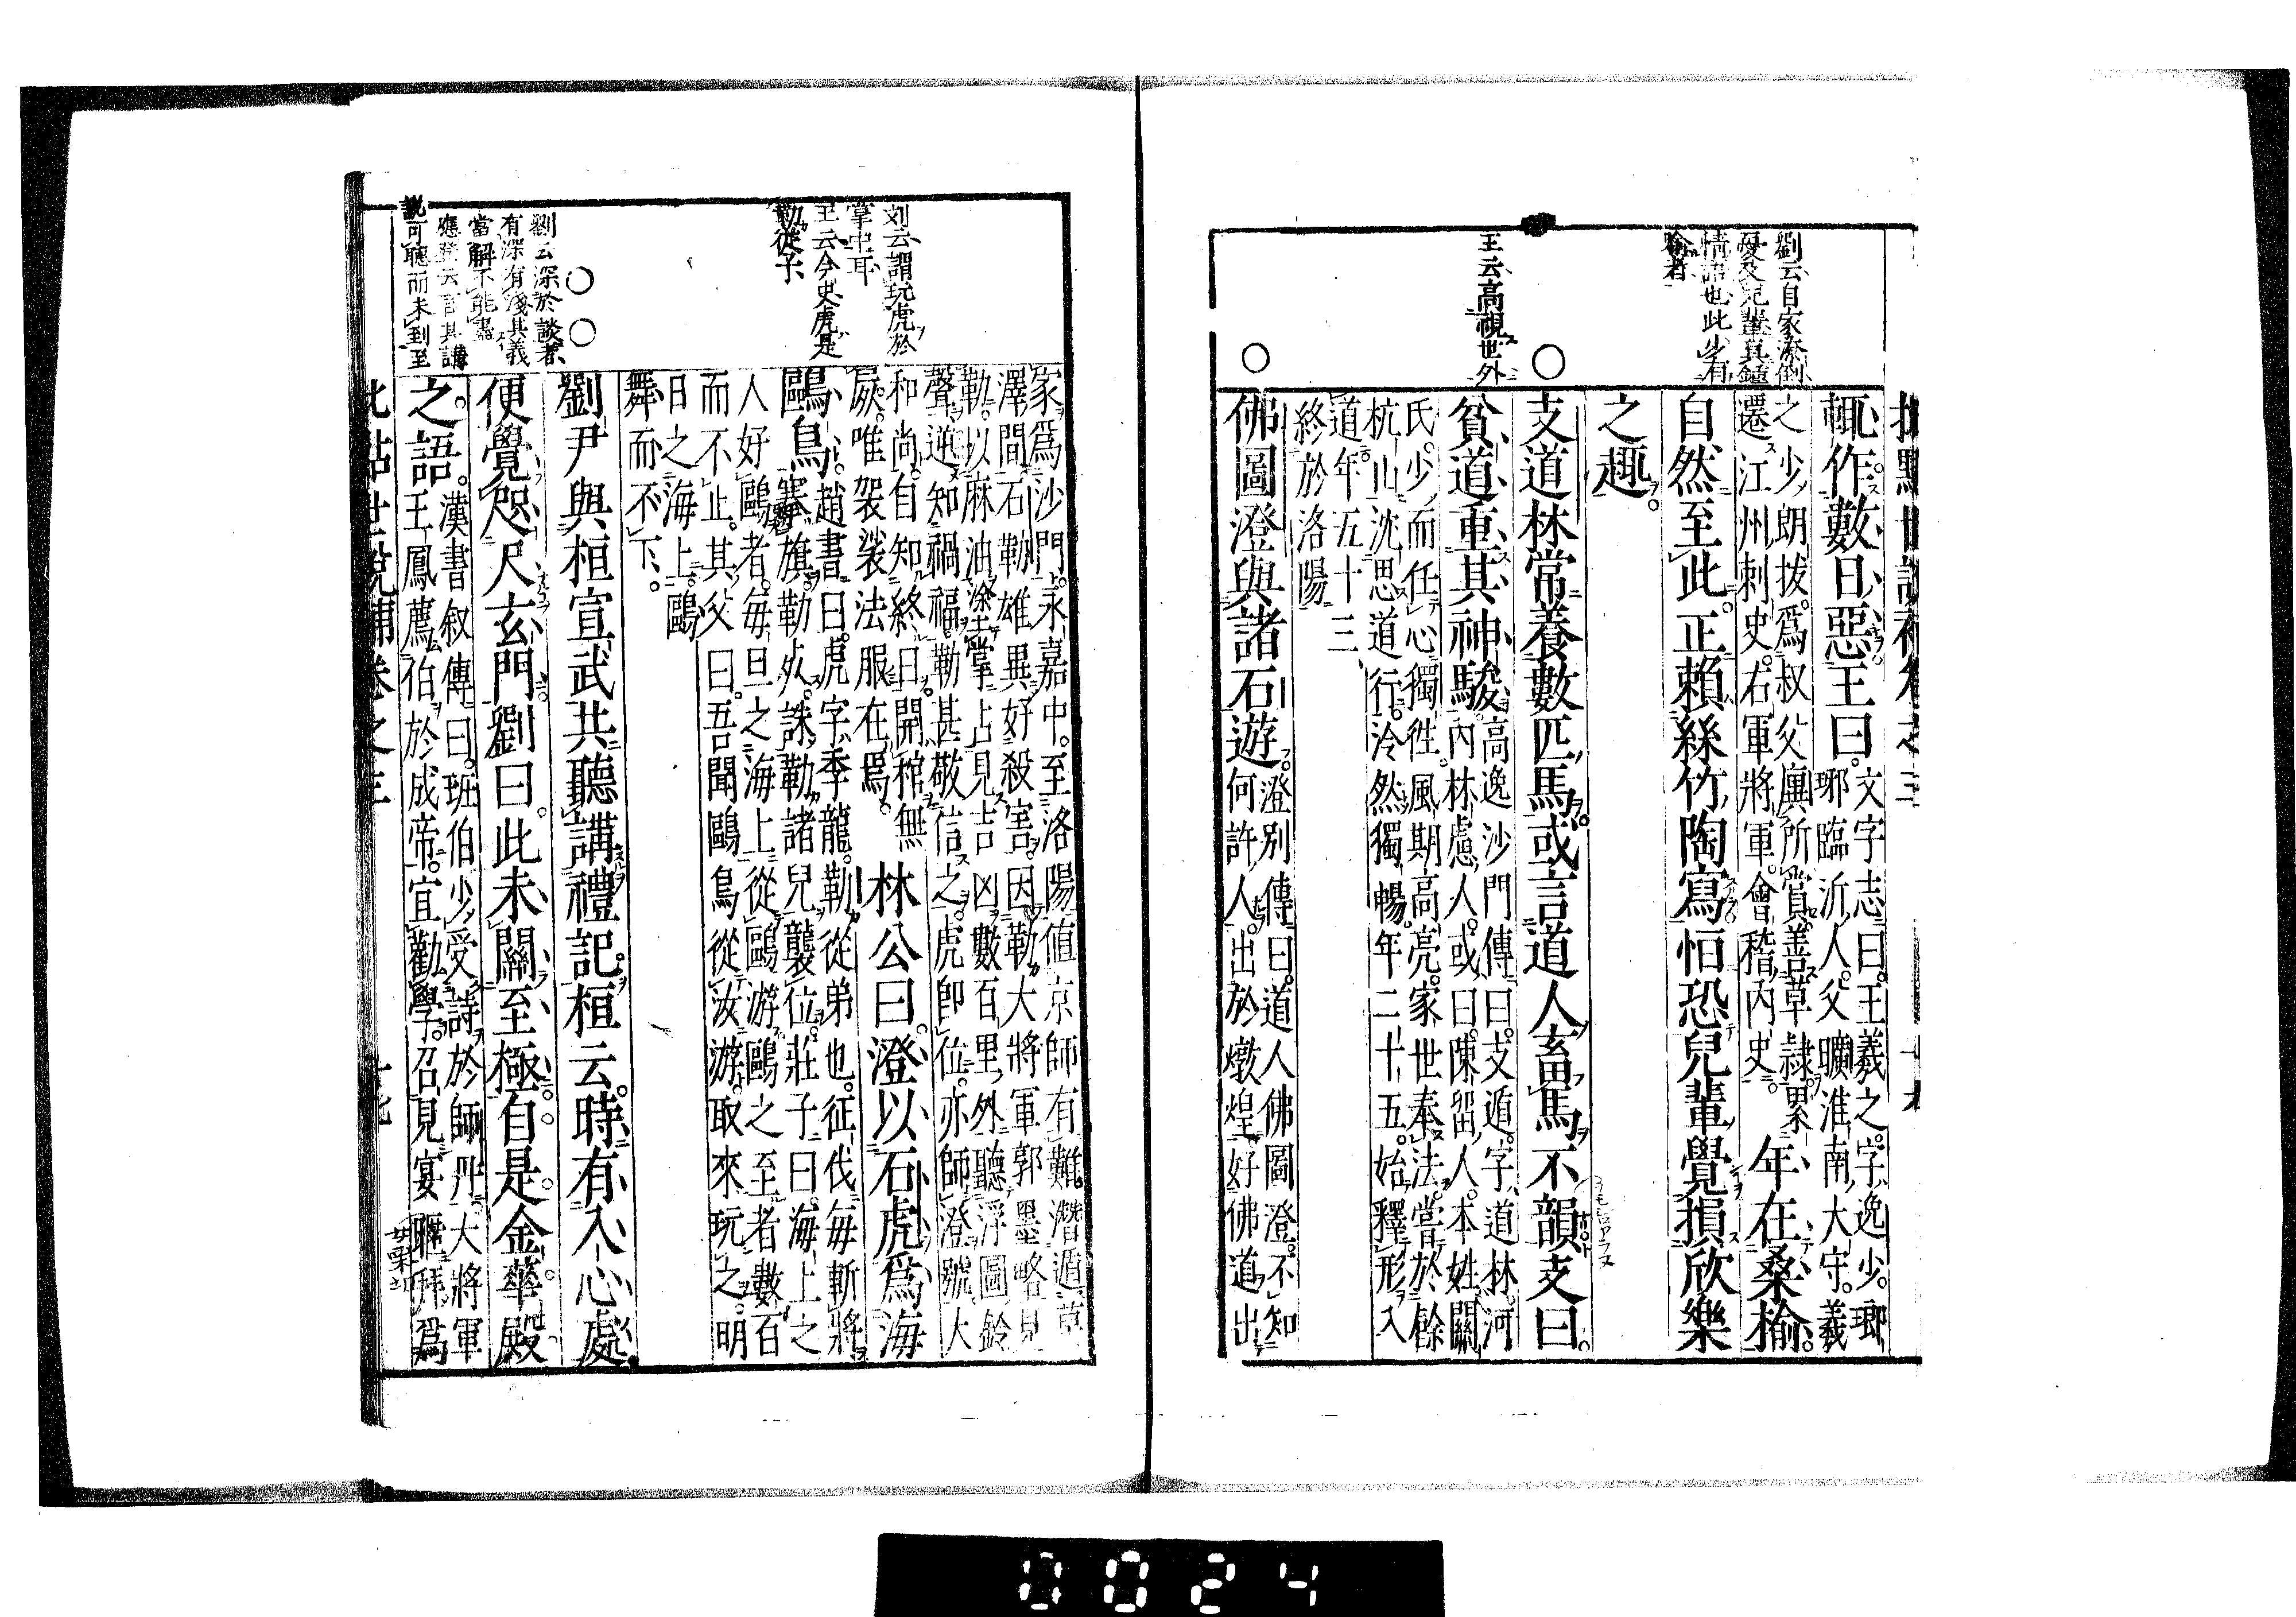 劉云自家潦倒
憂及兒輩真鍾
情語也此少有
喻者
王云高視世外
輒作數日惡王曰文字志曰王羲之字逸少瑯
琊臨沂人父曠淮南大守羲
之少朗拔爲叔父廙所賞善草隷累
遷江州刺史右軍將軍會稽內史
年在桑榆
自然至此正賴絲竹陶寫恒恐兒輩覺損欣樂
之趣
支道林常養數匹馬或言道人畜馬不韻支曰
貧道重其神駿高逸沙門傳曰支遁字道林河
內林慮人或曰陳留人本姓關
氏少而任心獨往風期高亮家世奉法嘗於餘
杭山沈思道行泠然獨暢年二十五始釋形入
道年五十三
終於洛陽
佛圖澄與諸石遊澄別傳曰道人佛圖澄不知
何許人出於燉煌好佛道出
刘云謂玩虎於
掌中耳
王云今史虎是
勒從子
劉云深於談者
有深有淺其義
當解不能盡
應登云言其講
説可聽而未到至
家爲沙門永嘉中至洛陽値京師有難潛遁草
澤間石勒雄異好殺害因勒大將軍郭墨略見
勒以麻油塗掌占見吉凶數百里外聽浮圖鈴
聲逆知禍福勒甚敬信之虎卽位亦師澄號大
和尚自知終日開棺無
屍唯袈裟法服在焉
林公曰澄以石虎爲海
鷗鳥趙書曰虎字季龍勒從弟也征伐毎斬將
搴旗勒死誅勒諸兒襲位莊子曰海上之
人好鷗者毎旦之海上從鷗游鷗之至者數百
而不止其父曰吾聞鷗鳥從汝游取來玩之明
日之海上鷗
舞而不下
劉尹與桓宣武共聽講禮記桓云時有入心處
便覺咫尺玄門劉曰此未關至極自是金華殿
之語漢書叙傳曰班伯少受詩於師丹大將軍
王鳳薦伯於成帝宜勸學召見宴昵拜爲
0024